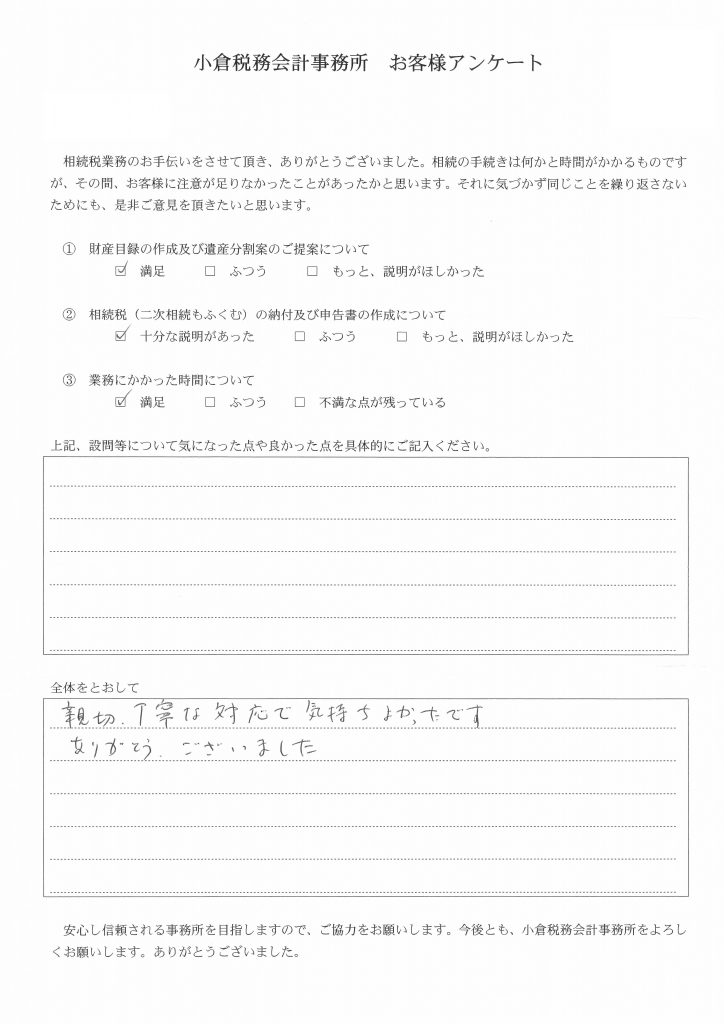 小倉税務会計事務所　お客様アンケート
相続税業務のお手伝いをさせて頂き、ありがとうございました。相続の手続きは何かと時間がかかるものです
が、その間、お客様に注意が足りなかったことがあったかと思います。それに気づかず同じことを繰り返さない
ためにも、是非ご意見を頂きたいと思います。
①　財産目録の作成及び遺産分割案のご提案について
☑　満足　　　□　ふつう　　　□　もっと、説明がほしかった
②　相続税（二次相続もふくむ）の納付及び申告書の作成について
☑　十分な説明があった　　　□　ふつう　　　□　もっと、説明がほしかった
③　業務にかかった時間について
☑　満足　　　□　ふつう　　□　不満な点が残っている
上記、設問等について気になった点や良かった点を具体的にご記入ください。
全体をとおして
親切、丁寧な対応で気持ちよかったです
ありがとう、ございました
安心し信頼される事務所を目指しますので、ご協力をお願いします。今後とも、小倉税務会計事務所をよろし
くお願いします。ありがとうございました。